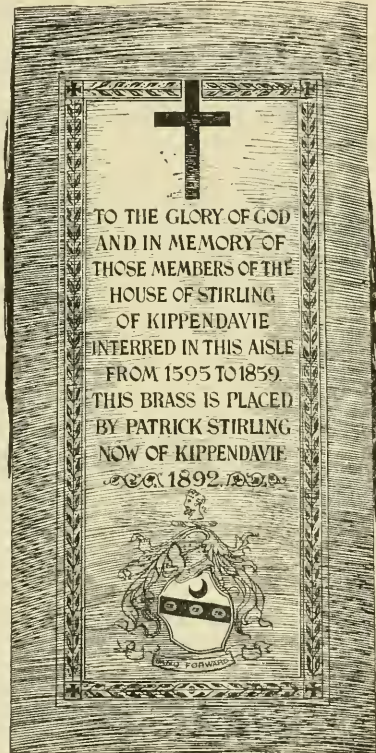 TO THE GLORY OF GOD
AND IN MEMORY OF
THOSE MEMBERS OF THE
HOUSE OF STIRLING
OF KIPPENDAVIE
INTERRED IN THIS AISLE
FROM 1595 TO 1859.
THIS BRASS IS PLACED
BY PATRICK STIRLING
NOW OF KIPPENDAVIE
1892.
GANG FORWARD